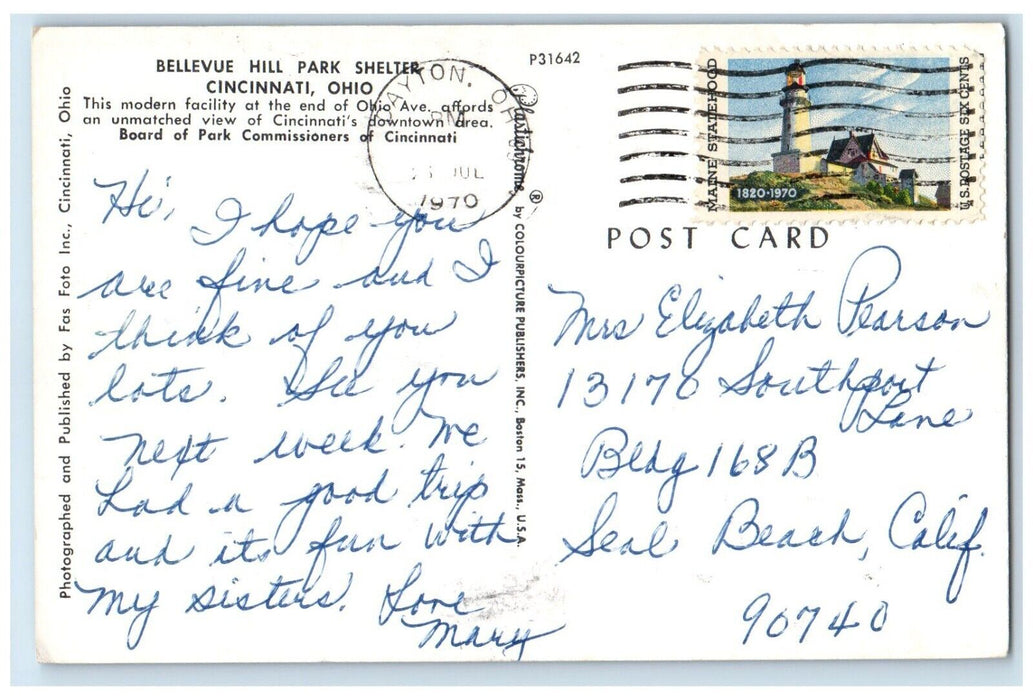 BELLEVUE HILL PARK SHELTER
CINCINNATI, OHIO
This modern facility at the end of Ohio Ave. affords
an unmatched view of Cincinnati's downtown area.
Board of Park Commissioners of Cincinnati
Photographed and Published by Fas Foto Inc., Cincinnati, Ohio
P31642
Plastichrome ® by COLOURPICTURE PUBLISHERS, INC., Boston 15, Mass., U.S.A.
DAYTON, OH
PM
JUL
1970
MAINE STATEHOOD
1820·1970
U.S. POSTAGE SIX CENTS
POST CARD
Hi,
I hope you
are fine and I
think of you
lots. See you
next week. We
had a good trip
and its fun with
my sisters. Love
Mary
Mrs Elizabeth Pearson
13170 Southport
Lane
Bldg 168B
Seal Beach, Calif.
90740